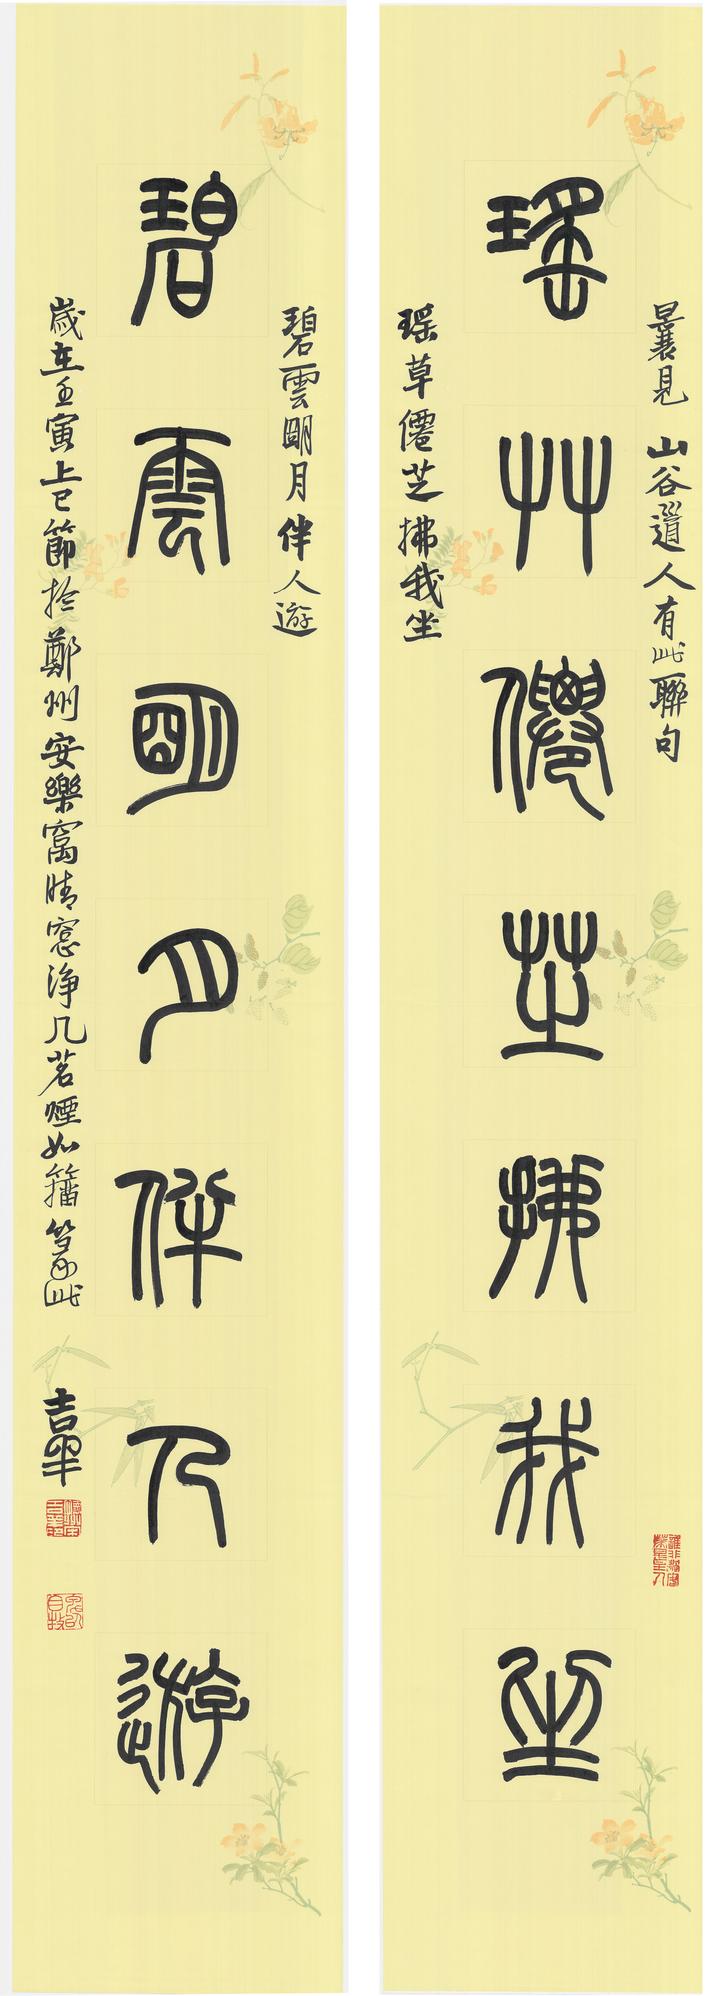 曩見山谷道人有此聯句
瑤艸僊芝拂我坐
瑶草僊芝拂我坐
碧雲朙月伴人遊
碧雲朙月伴人遊
歲在壬寅上巳節於鄭州安樂窩晴窓净几茗煙如籀篆此